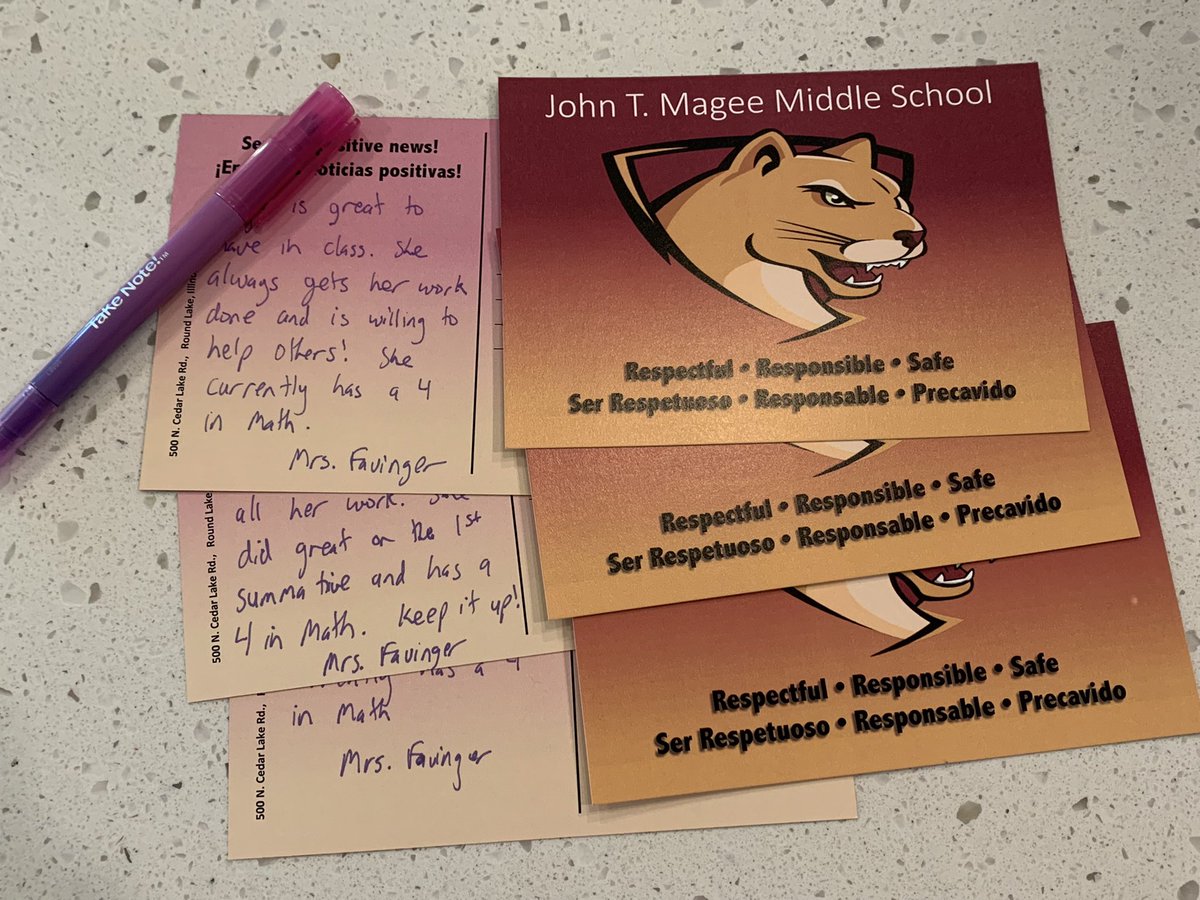 Se itive news!
¡En oticias positivas!
is great to
have in class. She
always gets her work
done and is willing to
help others! She
currently has a 4
in Math.
Mrs. Favinger
500 N. Cedar Lake Rd., Round Lake, Illin
all her work. She
did great on the 1st
summative and has a
4 in Math. Keep it up!
Mrs. Favinger
500 N. Cedar Lake Rd., Round Lake
has a 4
in Math
Mrs. Favinger
500 N. Cedar Lake Rd.,
Take Note!™
John T. Magee Middle School
Respectful • Responsible • Safe
Ser Respetuoso • Responsable • Precavido
Respectful • Responsible • Safe
Ser Respetuoso • Responsable • Precavido
Respectful • Responsible • Safe
Ser Respetuoso • Responsable • Precavido